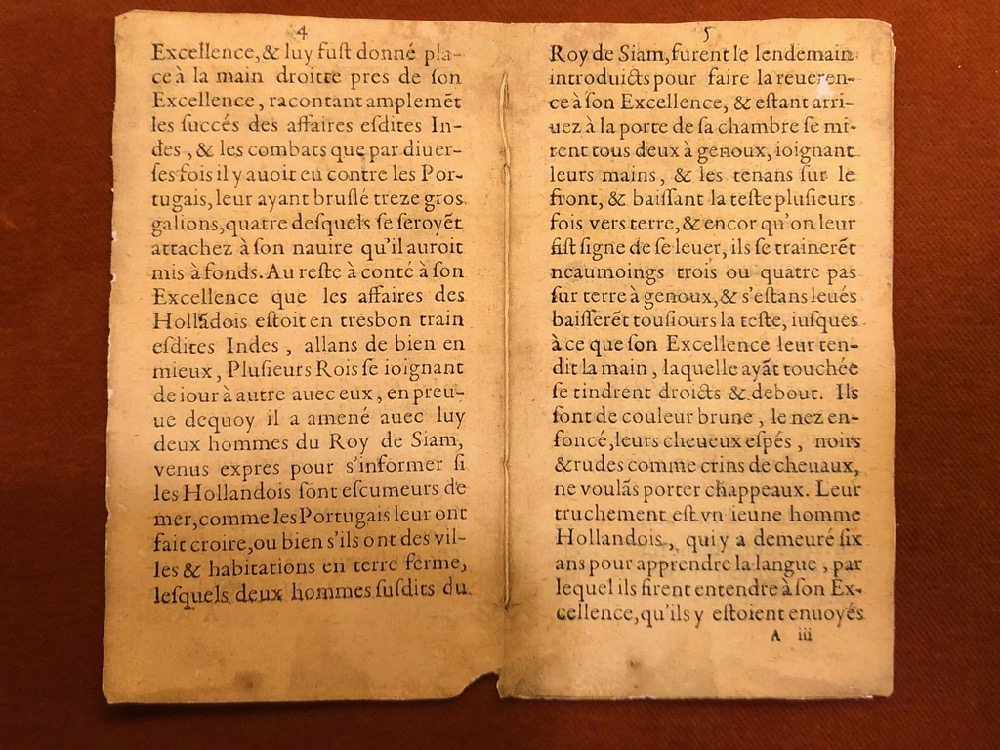 4
Excellence, & luy fuſt donné pla-
ce à la main droitte pres de ſon
Excellence, racontant amplemẽt
les ſuccés des affaires eſdites In-
des, & les combats que par diuer-
ſes fois il y auoit eu contre les Por-
tugais, leur ayant bruſlé treze gros
galions, quatre deſquels ſe ſeroyẽt
attachez à ſon nauire qu'il auroit
mis à fonds. Au reſte à conté à ſon
Excellence que les affaires des
Hollãdois eſtoit en tresbon train
eſdites Indes, allans de bien en
mieux, Pluſieurs Rois ſe ioignant
de iour à autre auec eux, en preu-
ue dequoy il a amené auec luy
deux hommes du Roy de Siam,
venus expres pour s'informer ſi
les Hollandois ſont eſcumeurs de
mer, comme les Portugais leur ont
fait croire, ou bien s'ils ont des vil-
les & habitations en terre ferme,
leſquels deux hommes ſuſdits du
5
Roy de Siam, furent le lendemain
introduicts pour faire la reueren-
ce à ſon Excellence, & eſtant arri-
uez à la porte de ſa chambre ſe mi-
rent tous deux à genoux, ioignant
leurs mains, & les tenans ſur le
front, & baiſſant la teſte pluſieurs
fois vers terre, & encor qu'on leur
fiſt ſigne de ſe leuer, ils ſe trainerẽt
neaumoings trois ou quatre pas
ſur terre à genoux, & s'eſtans leués
baiſſerẽt touſiours la teſte, iuſques
à ce que ſon Excellence leur ten-
dit la main, laquelle ayãt touchée
ſe tindrent droicts & debout. Ils
ſont de couleur brune, le nez en-
foncé, leurs cheueux eſpés, noirs
& rudes comme crins de cheuaux,
ne voulãs porter chappeaux. Leur
truchement eſt vn ieune homme
Hollandois, qui y a demeuré ſix
ans pour apprendre la langue, par
lequel ils firent entendre à ſon Ex-
cellence, qu'ils y eſtoient enuoyés
A iii